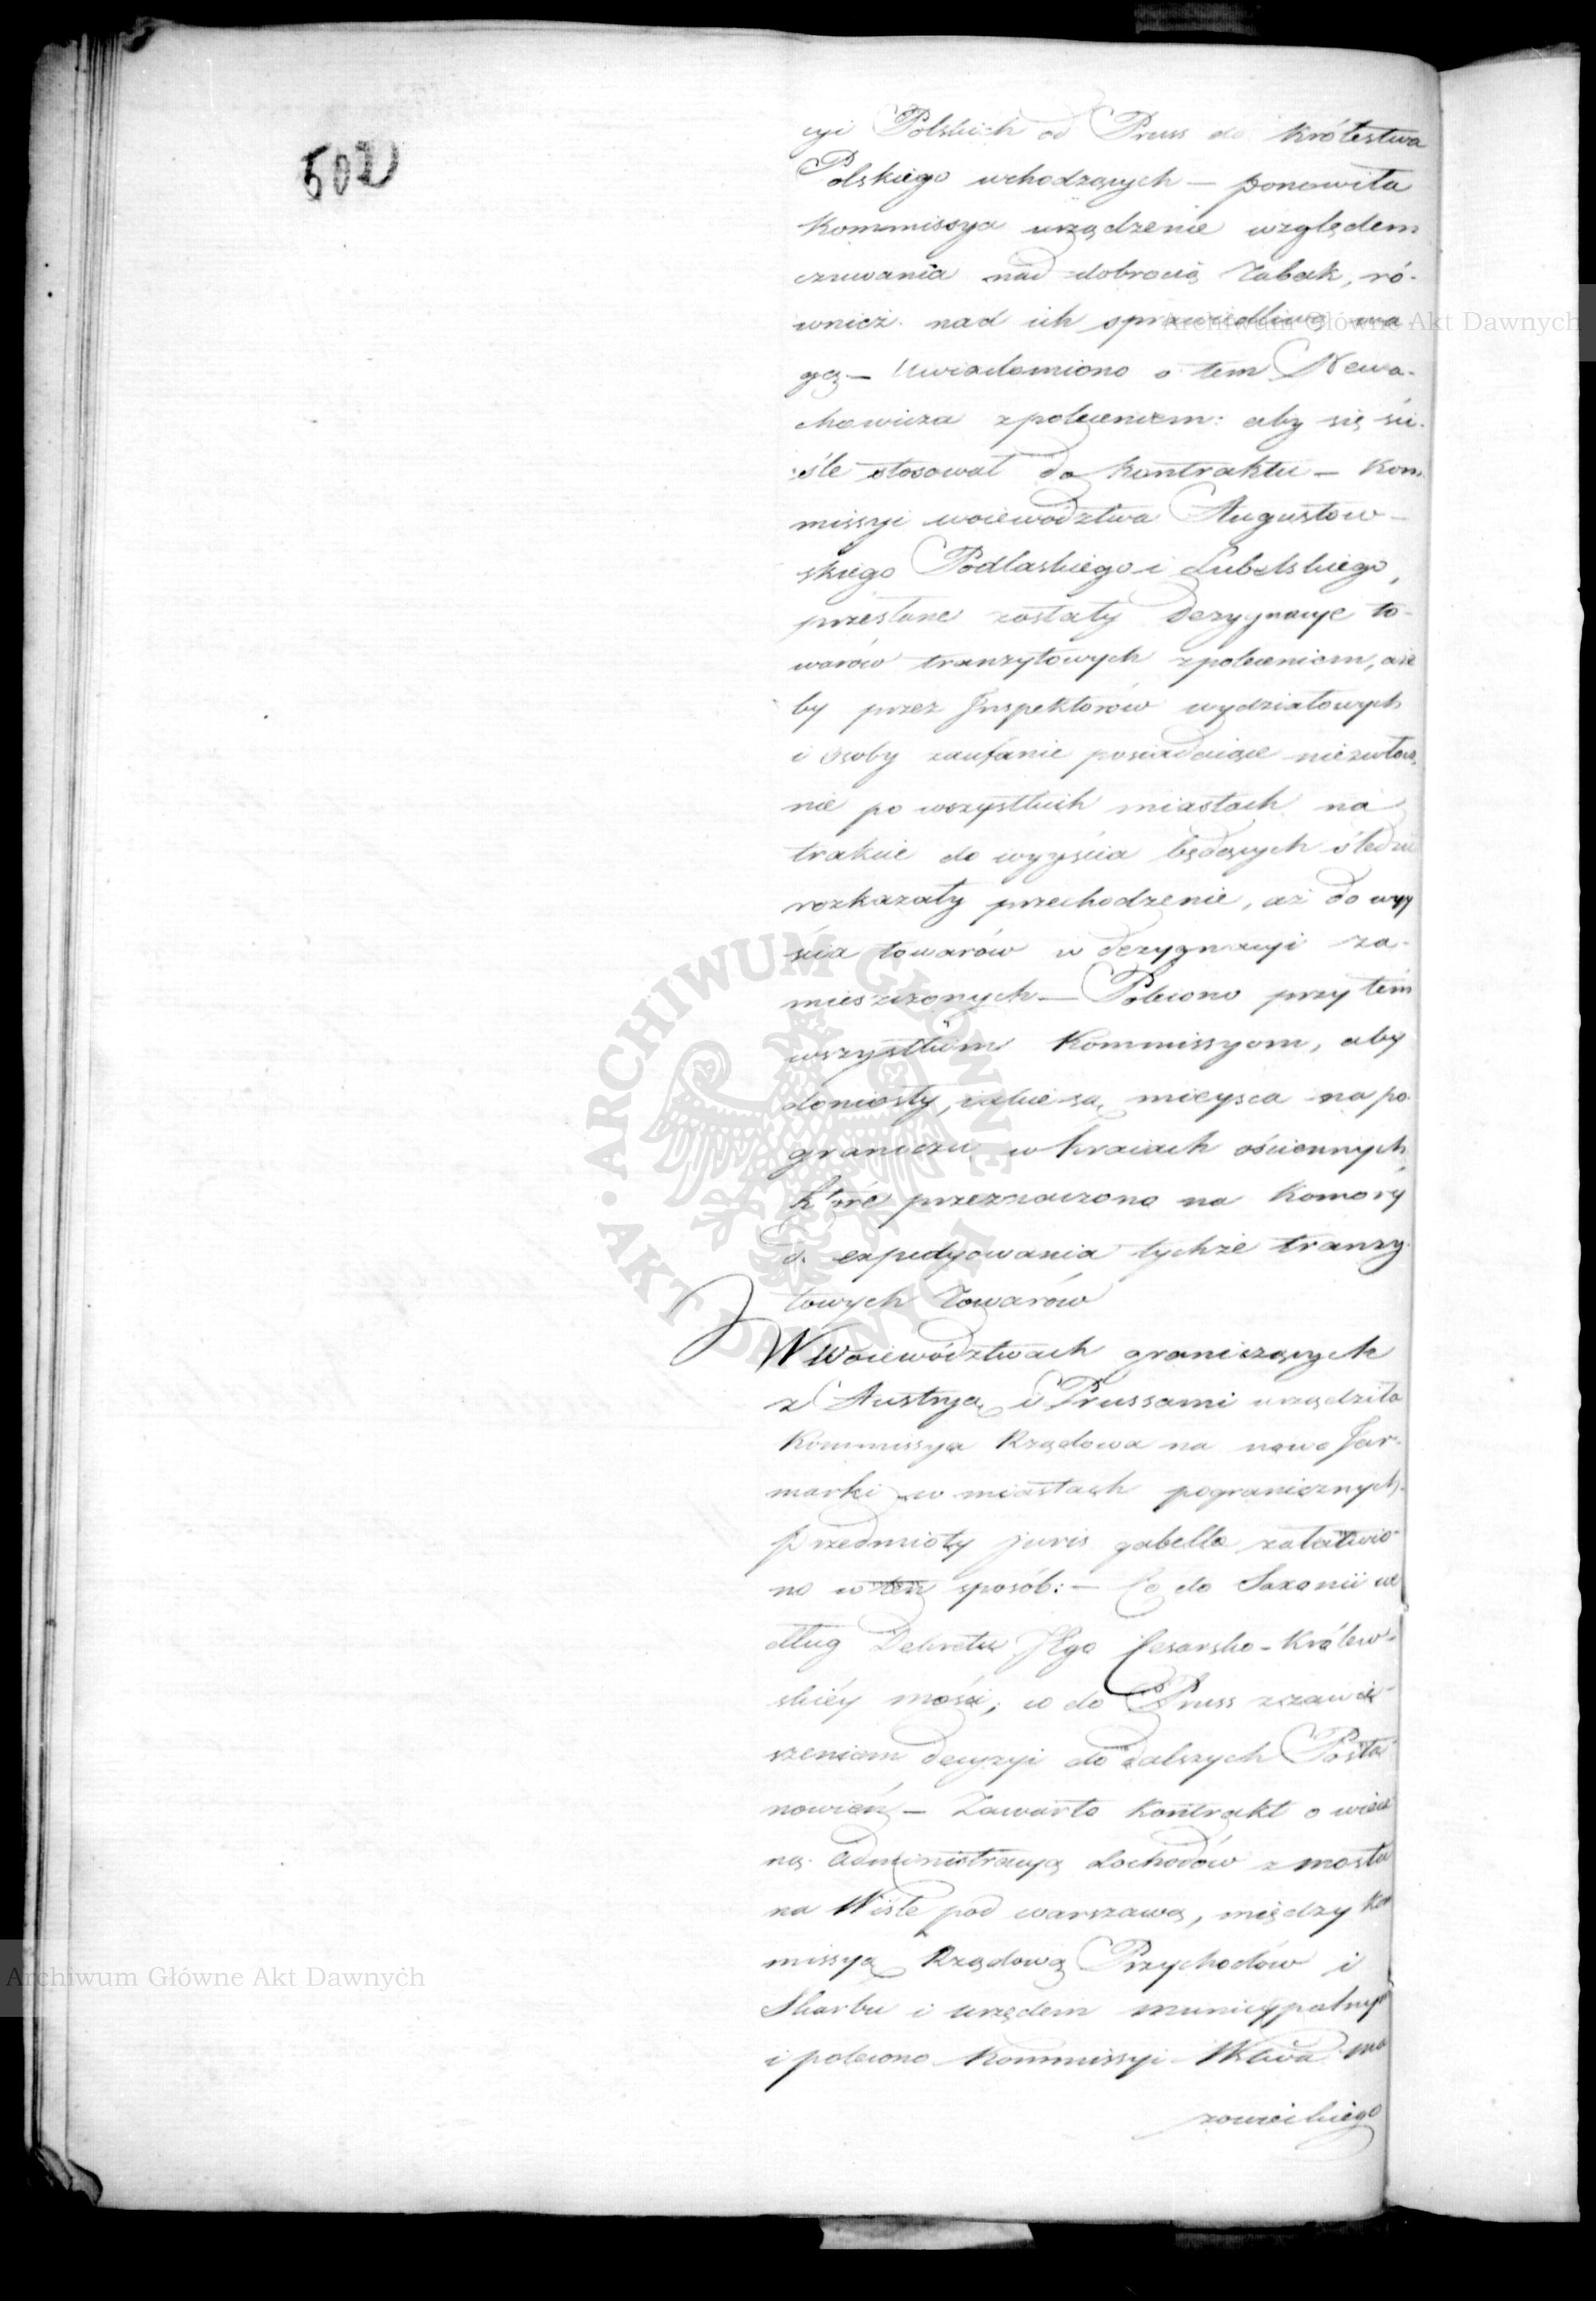 502
cyi Polskich od Pruss do Królestwa
Polskiego wchodzących — ponowiła
Kommissya urządzenie względem
czuwania nad dobrocią Tabak, ró-
wnież nad ich sprawiedliwą wa-
Archiwum Główne Akt Dawnych
gą — Uwiadomiono o tem Newa-
chowicza z poleceniem: aby się ści-
śle stosował do kontraktu — Kom-
missyi woiewództwa Augustow-
skiego Podlaskiego i Lubelskiego,
przesłane zostały Dezygnacye to-
warów tranzytowych z poleceniem, aże
by przez Jnspektorów wydziałowych
i osoby zaufanie posiadaiące niezwłocz
nie po wszystkich miastach na
trakcie do wyyścia będących śledzić
rozkazały przechodzenie, aż do wyy
ścia towarów w dezygnacyi za-
mieszczonych — Polecono przytém
wszystkim Kommissyom, aby
doniosły, iakie są mieysca na po-
graniczu w kraiach ościennych
które przeznaczono na Komory
do expedyowania tychże tranzy-
towych Towarów
W Woiewództwach graniczących
z Austryą i Prussami urządziła
Kommissya Rządowa na nowo Jar-
marki w miastach pogranicznych.
przedmioty juris gabella załatwio-
no w ten sposób: — Co do Saxonii we
dług Dekretu JEgo Cesarsko-Królew-
skiéy mości; co do Pruss z zawie-
szeniem decyzyi do dalszych Posta-
nowień — Zawarto Kontrakt o wiecz
ną administracyą dochodów z mostu
na Wiśle pod warszawą, między Kom
missyą Rządową Przychodów i
Archiwum Główne Akt Dawnych
Skarbu i urzędem municypalnym
i polecono Kommissyi Wztwa Ma
zowieckiego
ARCHIWUM GŁÓWNE AKT DAWNYCH